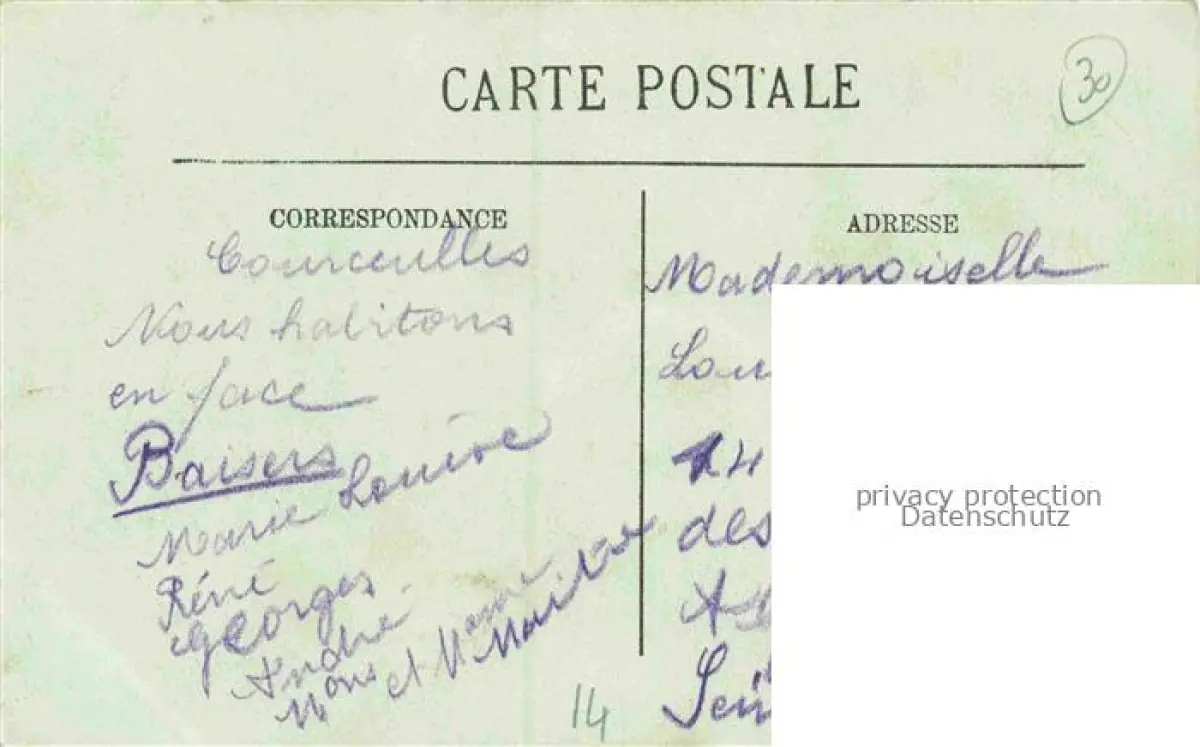 CARTE POSTALE
30
CORRESPONDANCE
Courseulles
Nous habitons
en face
Baisers
Marie Louise
Réné
Georges
André
Mons et Mme
14
ADRESSE
Mademoiselle
Lou
14
des
privacy protection
Datenschutz